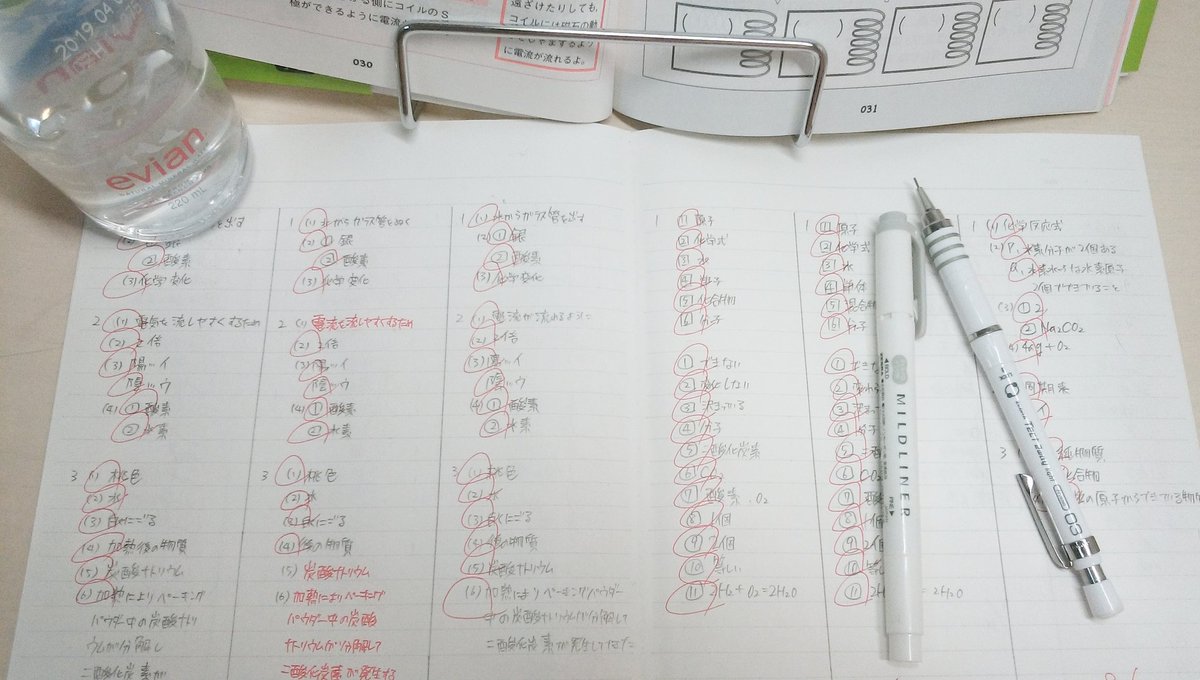 2019.04.0
evian
220 mL
る側にコイルのS
極ができるように電流
030
遠ざけたりしても、
コイルには磁石の動
に電流が流れるよ。
031
を出す
② 酸素
(3) 化学変化
2 (1) 電気を流しやすくするため
(2) 2倍
(3) 陽…イ
陰…ウ
(4) ① 酸素
② 水素
3 (1) 桃色
(2) 水
(3) 白くにごる
(4) 加熱後の物質
(5) 炭酸ナトリウム
(6) 加熱によりベーキング
パウダー中の炭酸ナトリ
ウムが分解し
二酸化炭素が
1 (1) 水からガラス管をぬく
(2) ① 銀
② 酸素
(3) 化学変化
2 (1) 電流を流しやすくするため
(2) 2倍
(3) 陽…イ
陰…ウ
(4) ① 酸素
② 水素
3 (1) 桃色
(2) 水
(3) 白くにごる
(4) 後の物質
(5) 炭酸ナトリウム
(6) 加熱によりベーキング
パウダー中の炭酸
ナトリウムが分解して
二酸化炭素が発生する
1 (1) 水からガラス管を出す
(2) ① 銀
② 酸素
(3) 化学変化
2 (1) 電流が流れるように
(2) 2倍
(3) 陽…イ
陰…ウ
(4) ① 酸素
② 水素
3 (1) 桃色
(2) 水
(3) 白くにごる
(4) 後の物質
(5) 炭酸ナトリウム
(6) 加熱によりベーキングパウダー
中の炭酸ナトリウムが分解して
二酸化炭素が発生した
1 [1] 原子
[2] 化学式
[3] 水
[4] 単体
[5] 化合物
[6] 分子
① できない
② 変化しない
③ 決まっている
④ 分子
⑤ 二酸化炭素
⑥ CO₂
⑦ 酸素、O₂
⑧ 1個
⑨ 2個
⑩ 等しい
⑪ 2H₂ + O₂ = 2H₂O
1 [1] 原子
[2] 化学式
[3] 水
[4] 単体
[5] 混合物
[6] 分子
① できな
② 変わら
③ 決まっ
④ 分子
⑤ 二酸
⑥ CO₂
⑦ 酸素
⑧ 1個
⑨ 2個
⑩ 等し
⑪ 2H = 2H₂O
1 (1) 化学反応式
(2) P、水素分子が2個ある
Q、水素分子1つは水素原子
2個でできていること
(3) ① 2
② Na₂CO₃
周期表
イ
3 純物質
化合物
の原子からできている物質
MILDLINER
03